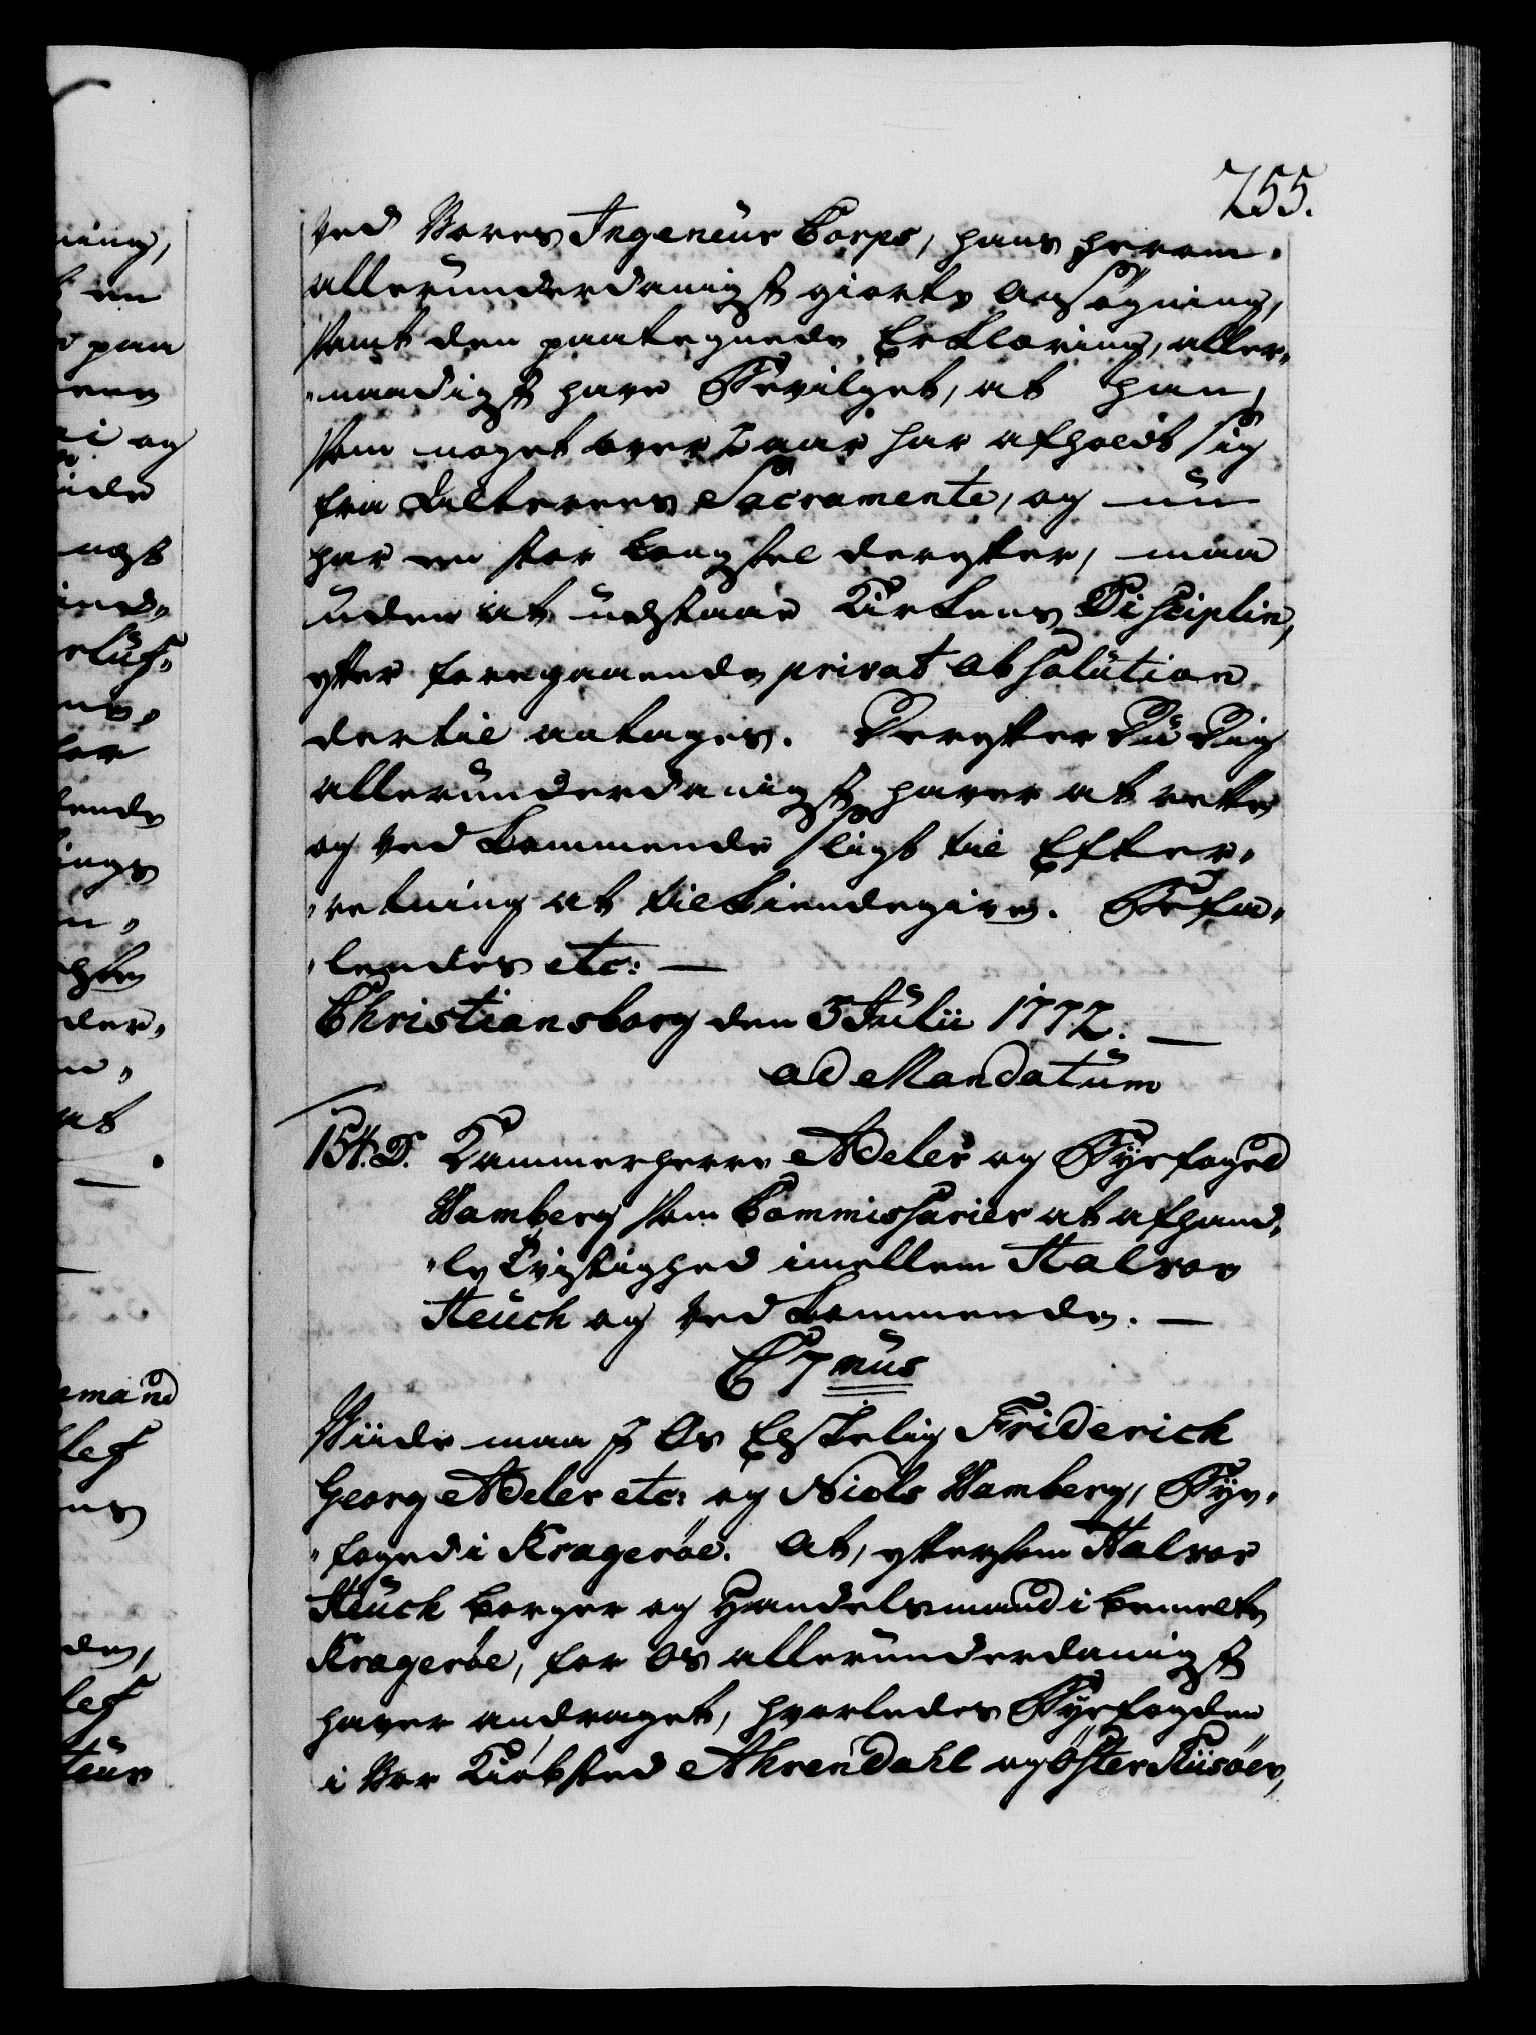 255.
ved Vores Ingenieur Corps, hans herom
allerunderdanigst giorte Ansøgning,
samt den paategnede Erklæring, aller-
naadigst have Bevilget, at han,
som noget over 2 aar har afholdt sig
fra Alterens Sacramente, og nu
har en stor Længsel derefter, maa
uden at udstaae Kirkens Disciplin,
efter foregaaende privat Absolution
dertil antages. Derefter Du Dig
allerunderdanigst haver at rette
og Vedkommende sligt til Efter-
retning at tilkiendegive. Befa-
lendes etc: —
Christiansborg den 3 Julii 1772. —
ad Mandatum
154. D. Kammerherre Adeler og Byefoged
Wamberg som Commissarier at afhand-
le Tvistighed imellem Halvor
Heuch og Vedkommende. —
C 7 mus
Viide maa I Os Elskelig Friderich
Georg Adeler etc: og Niels Wamberg, Bye-
foged i Kragerøe. At, eftersom Halvor
Heuch Borger og Handelsmand i bemelte
Kragerøe, for Os allerunderdanigst
haver andraget, hvorledes Byefogden
i Vor Kiøbsted Ahrendahl og Øster Riisøer,